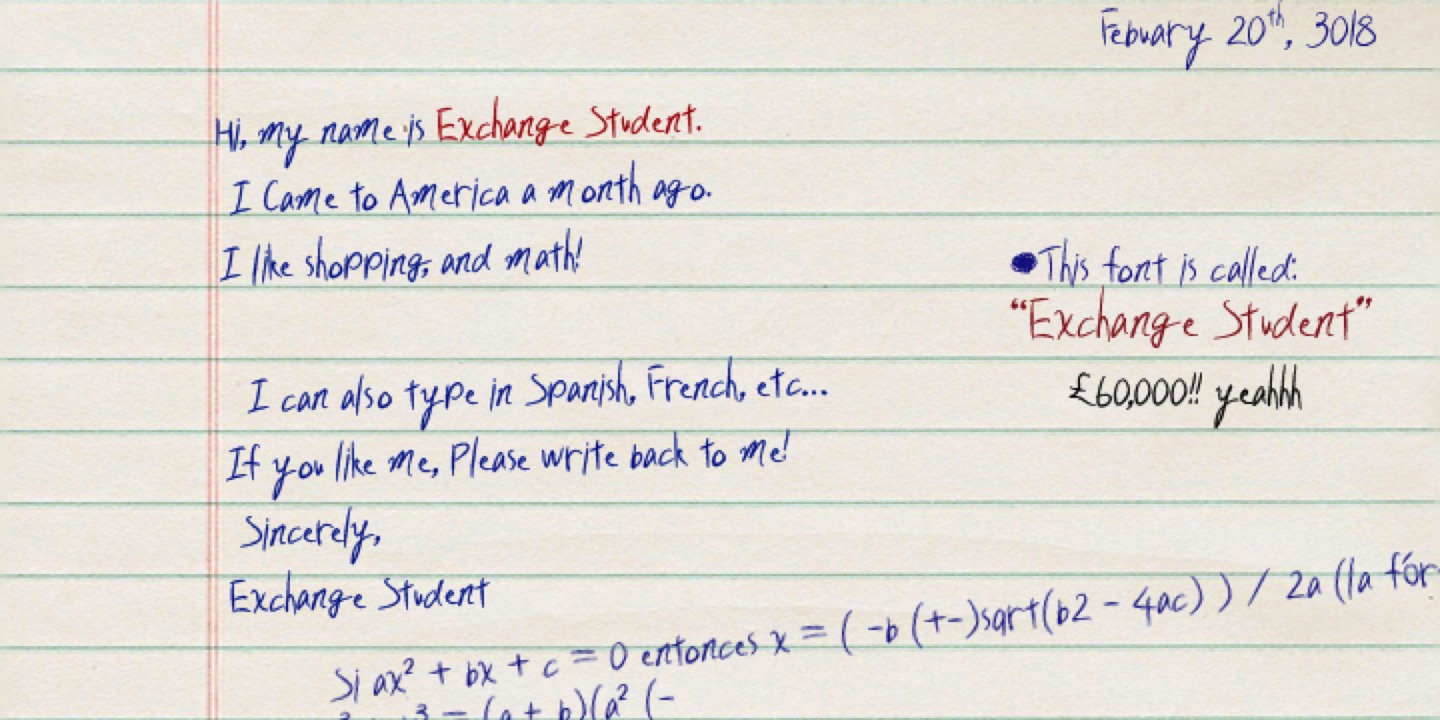 Febuary 20th, 3018
Hi, my name is Exchange Student.
I Came to America a month ago.
I like shopping, and math!
•This font is called:
“Exchange Student”
I can also type in Spanish, French, etc...
£60,000!! yeahhh
If you like me, Please write back to me!
Sincerely,
Exchange Student
Si ax² + bx + c = 0 entonces x = ( -b (+-)sqrt(b2 - 4ac) ) / 2a (la fór
= (a + b)(a² (-